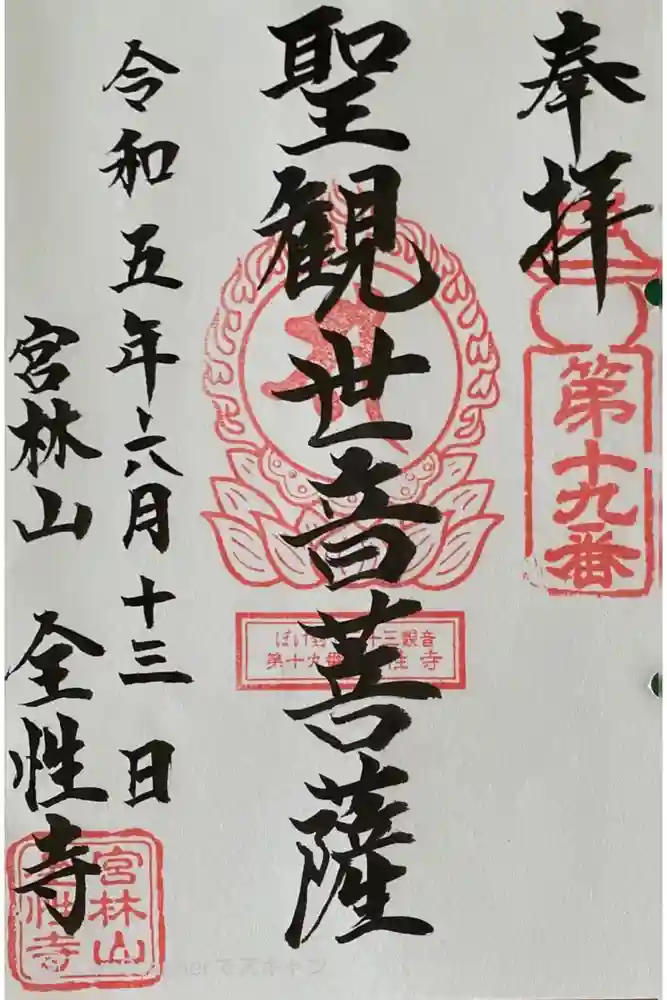 奉拝
第十九番
聖観世音菩薩
ぼけ封 十三観音
第十九番 性寺
令和五年六月十三日
宮林山 全性寺
宮林山
性寺
でスキャン